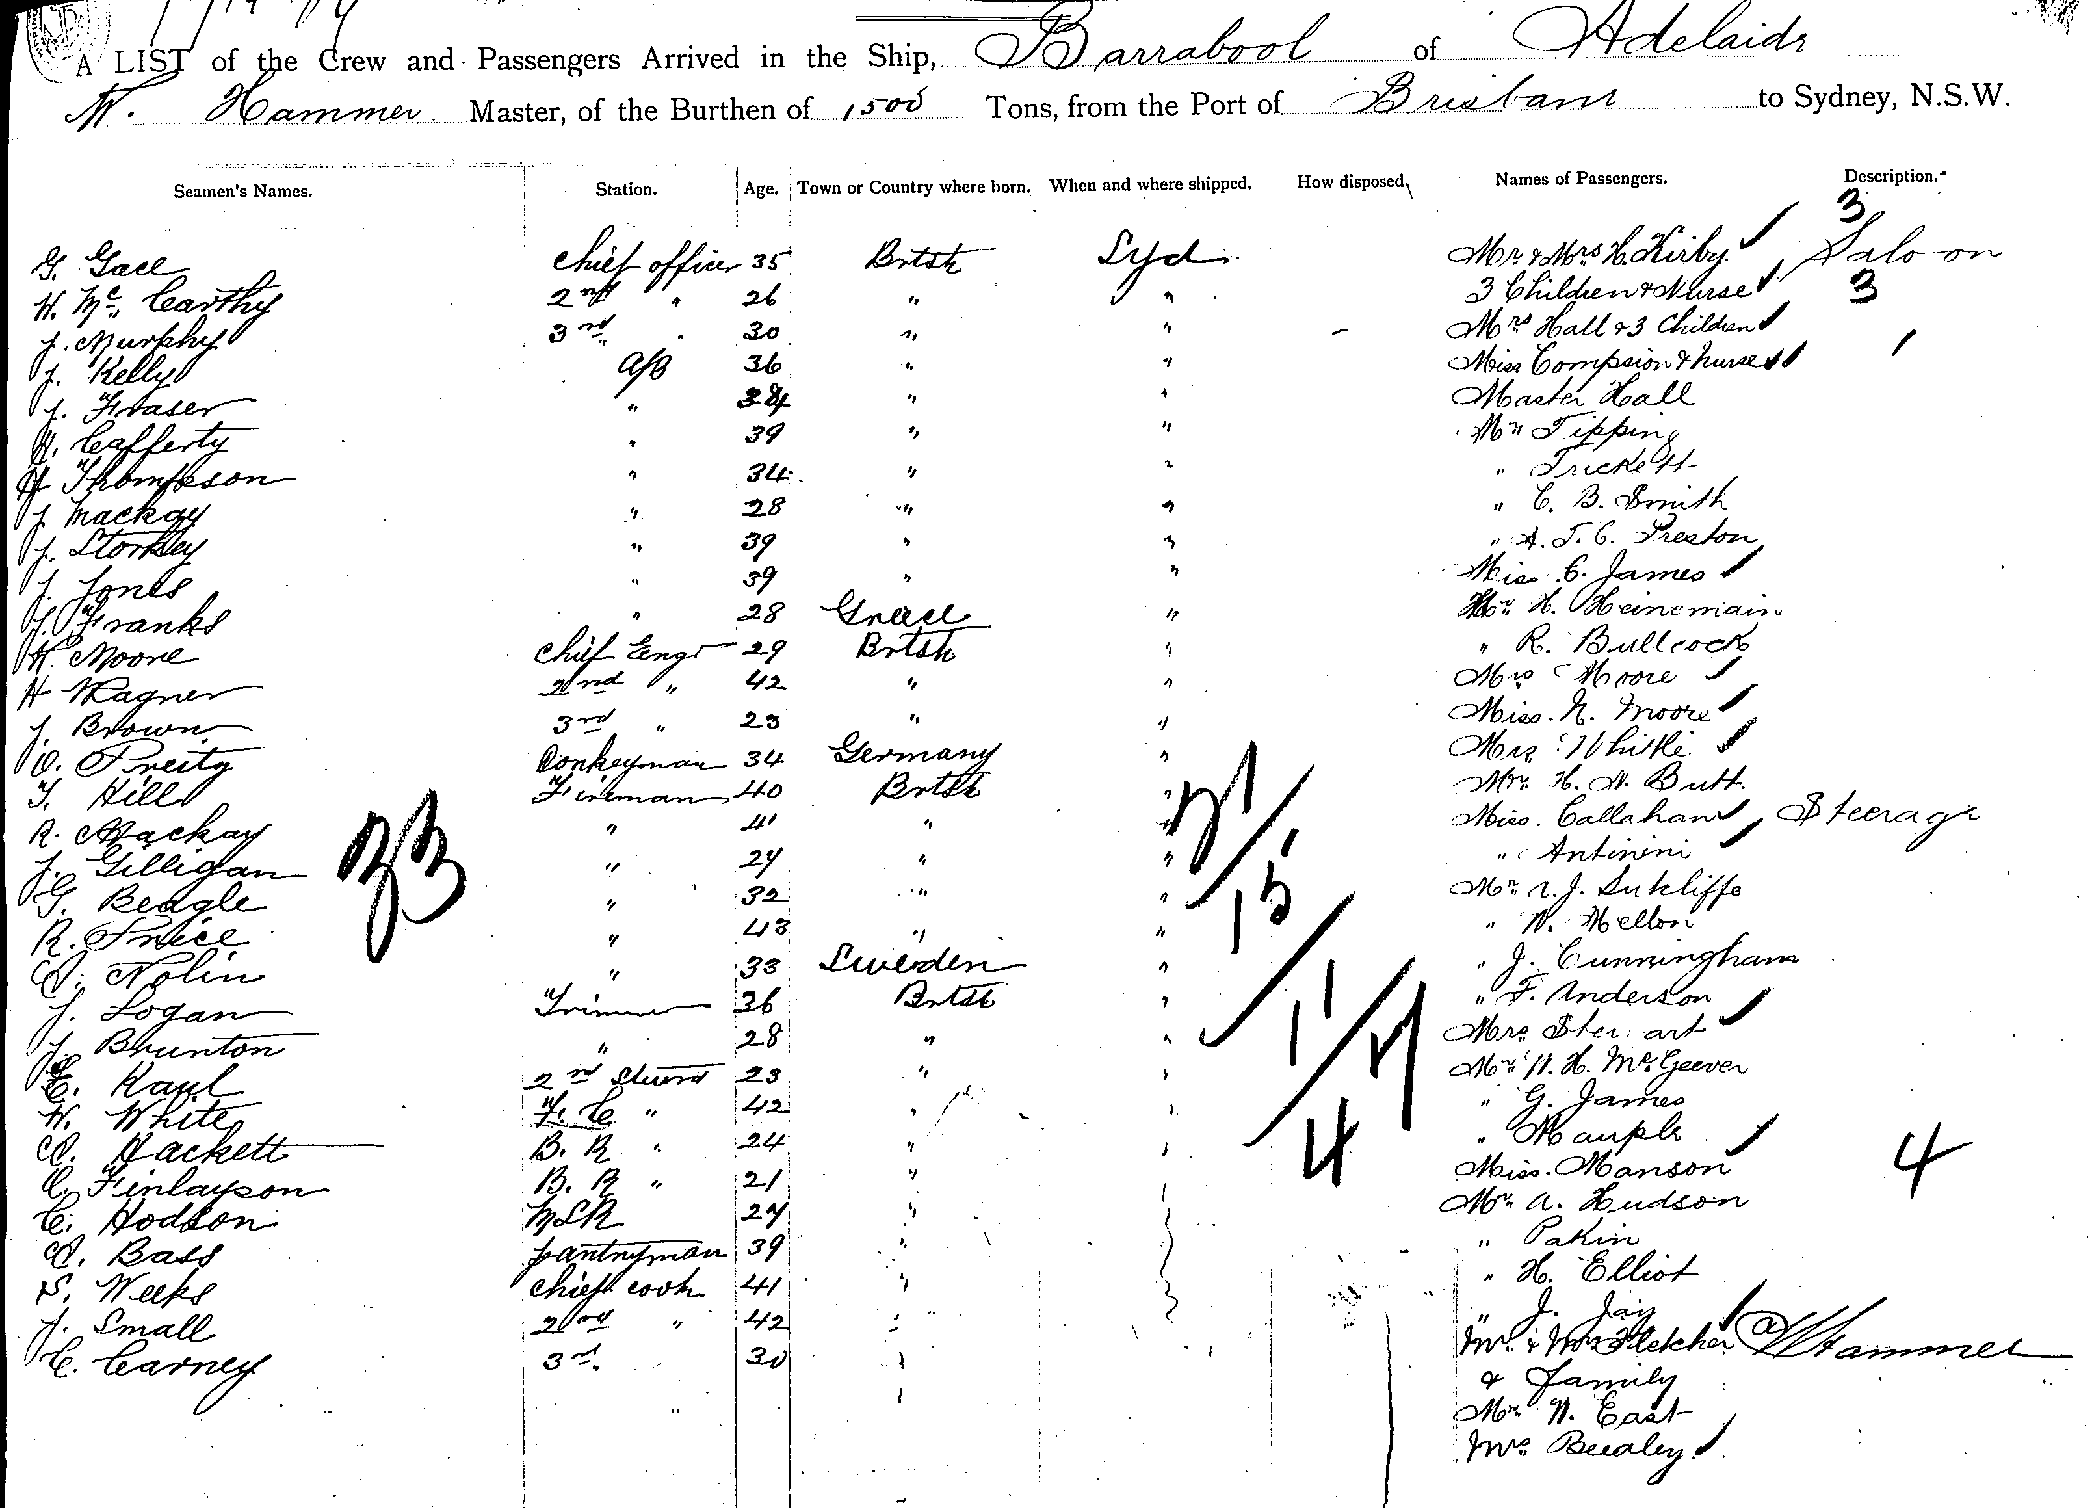 A LIST of the Crew and Passengers Arrived in the Ship, Barrabool of Adelaide
W. Hammer Master, of the Burthen of 1500 Tons, from the Port of Brisbane to Sydney, N.S.W.
Seamen's Names. Station. Age. Town or Country where born. When and where shipped. How disposed. Names of Passengers. Description.
3
G. Gael chief officer 35 Brtsh Syd Mr & Mrs H. Kirby Saloon
H. Mc Carthy 2nd " 26 " " 3 Children & Nurse 3
J. Murphy 3rd " 30 " " Mrs Hall & 3 Children
J. Kelly A/B 36 " " Miss Compsion & nurse 1
J. Fraser " " " Master Hall
H. Cafferty " 39 " " Mr Tipping
H Thompson " 34 " " " Trickett
J. Mackay " 28 " " " C. B. Smith
J. Storkey " 39 " " " A. T. C. Preston
J. Jones " 39 " " Miss C. James
J. Franks " 28 Greece " Mr H. Heinemain
H. Moore chief Engr 29 Brtsh " " R. Bullcock
H Wagner 2nd " 42 " " Mrs Moore
J. Brown 3rd " 23 " " Miss. N. Moore
O. Preity Donkeyman 34 Germany " Mrs Whitke
T. Hill Fireman 40 Brtsh " Mr. H. W. Butt
R. Mackay " 41 " " Miss. Callahan Steerage
33
J. Gilligan " 27 " " " Antinini
G. Beagle " 32 " " Mr A. J. Sutkliffe
R. Price " 43 " " " W. Mellon
15
A. Nolin " 33 Sweden " " J. Cunningham
J. Logan Trimmer 36 Brtsh " " F. Anderson
11
J. Brunton " 28 " " Mrs Stewart
E. Kaul 2nd Stwrd 23 " " Mr W. H. McGeever
W. White F. C " 42 " " " G. James
A. Hackett B. R " 24 " " " Mauple
4
C. Finlayson B. R " 21 " Miss. Manson 4
C. Hodson MSR 27 " Mr. A. Hudson
A. Bass pantryman 39 " " Pakin
S. Weeks chief cook 41 " " H. Elliot
J. Small 2nd " 42 " " J. Jay
C. Carney 3rd. 30 Mr. & Mrs Fletcher W Hammer
" & Family
Mr W. East
Mrs Beealey